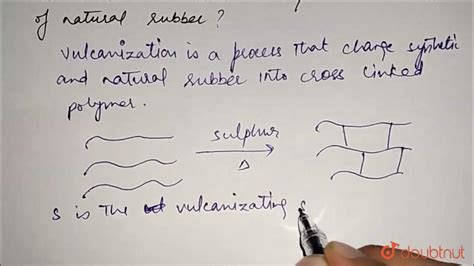 of natural rubber?
Vulcanization is a process that change synthetic
and natural rubber into cross linked
polymer.
sulphur
Δ
S is the vulcanizating
doubtnut